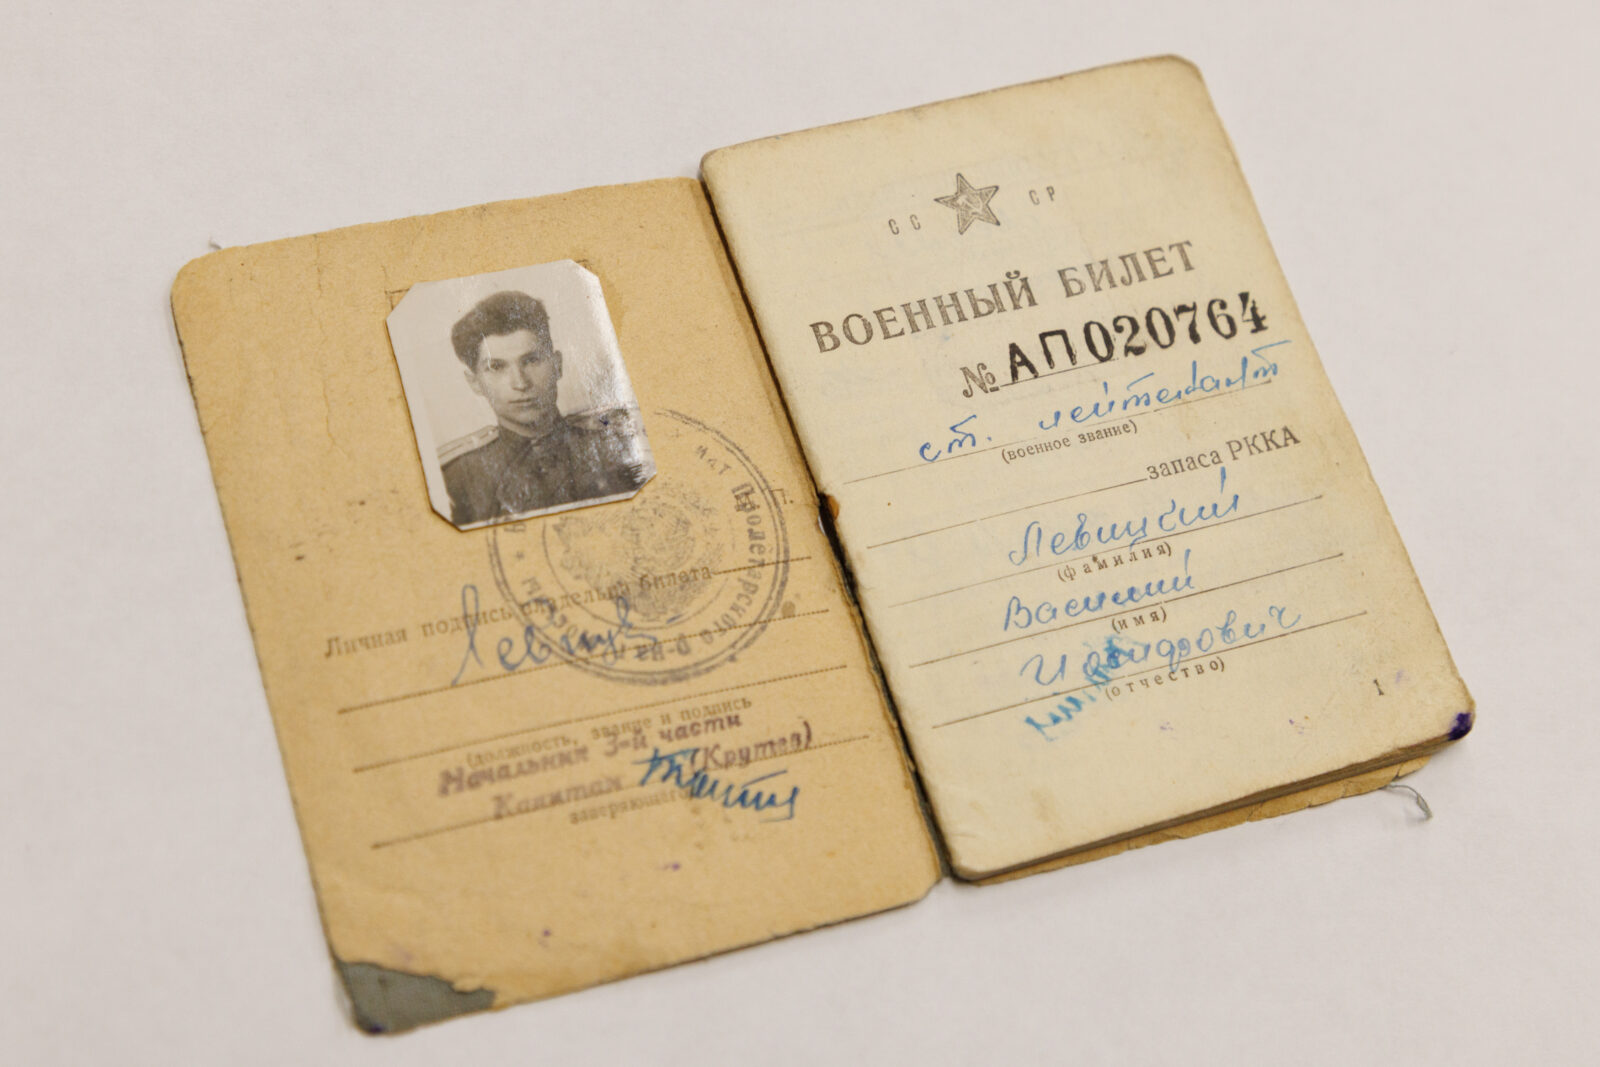 Личная подпись владельца билета
Левиц
(должность, звание и подпись
Начальник 3-й части
Капитан (Крутов)
заверяющего
Пролетарского р-на
СС СР
ВОЕННЫЙ БИЛЕТ
№ АП 020764
ст. лейтенант
(военное звание)
запаса РККА
Левицкий
(фамилия)
Василий
(имя)
Иосифович
(отчество)
1